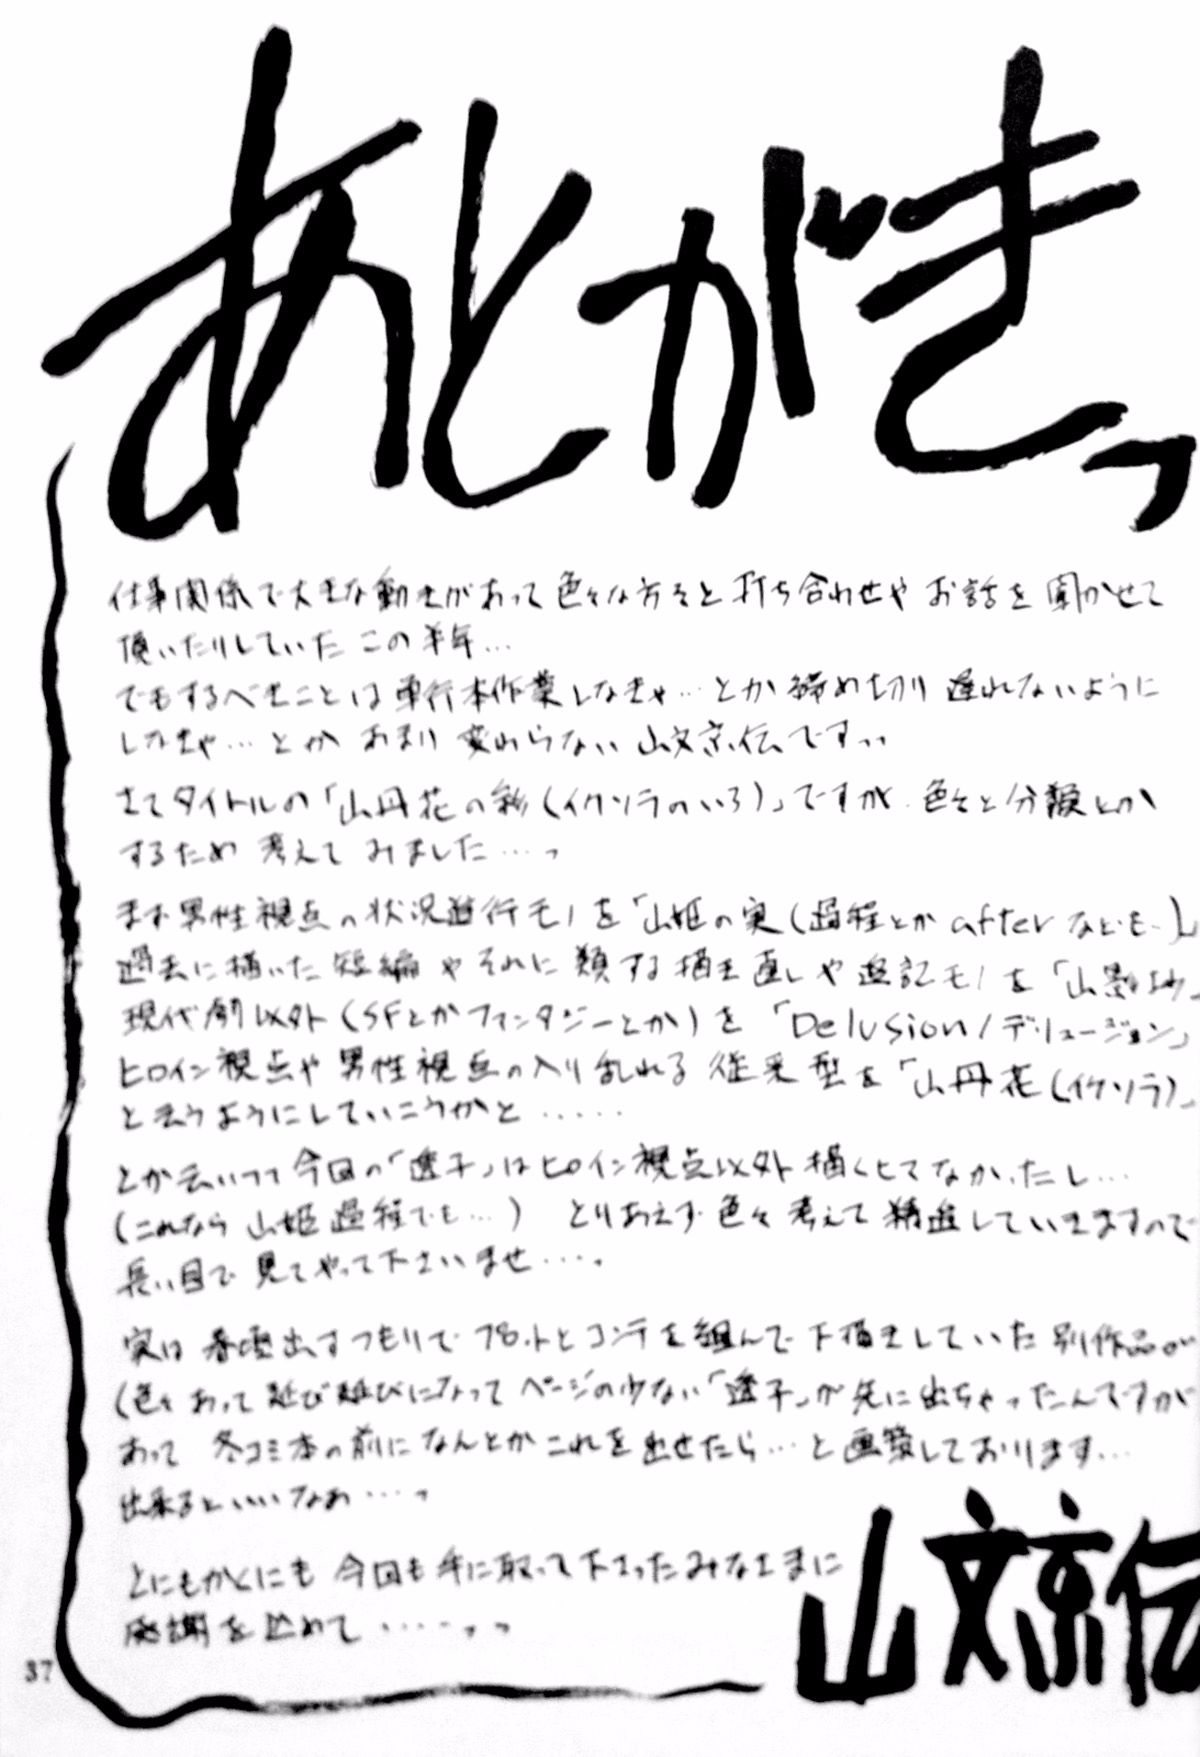 あとがきっ
仕事関係で大きな動きがあって色々な方々と打ち合わせやお話を聞かせて
頂いたりしていたこの半年…
でもするべきことは単行本作業しなきゃ…とか締め切り遅れないように
しなきゃ…とかあまり変わらない山文京伝ですっ
さてタイトルの「山丹花の彩(イケソラのいろ)」ですが、色々と分類とか
するため考えてみました…っ
まず男性視点の状況進行モノを「山姫の実(過程とかafterなども…)」
過去に描いた短編やそれに類する描き直しや追記モノを「山影抄」
現代劇以外(SFとかファンタジーとか)を「Delusion/デリュージョン」
ヒロイン視点や男性視点の入り乱れる従来型を「山丹花(イケソラ)」
と云うようにしていこうかと……
とか云いつつ今回の「透子」はヒロイン視点以外描くヒマなかったし…
(これなら山姫過程でも…) とりあえず色々考えて精進していきますので
長い目で見てやって下さいませ…。
実は春頃出すつもりでプロットとコンテを組んで下描きしていた別作品が
(色々あって延び延びになってページの少ない「透子」が先に出ちゃったんですが
あって 冬コミ本の前になんとかこれを出せたら…と画策しております…
出来るといいなぁ…っ
とにもかくにも今回も手に取って下さったみなさまに
感謝を込めて……っっ
山文京伝
37